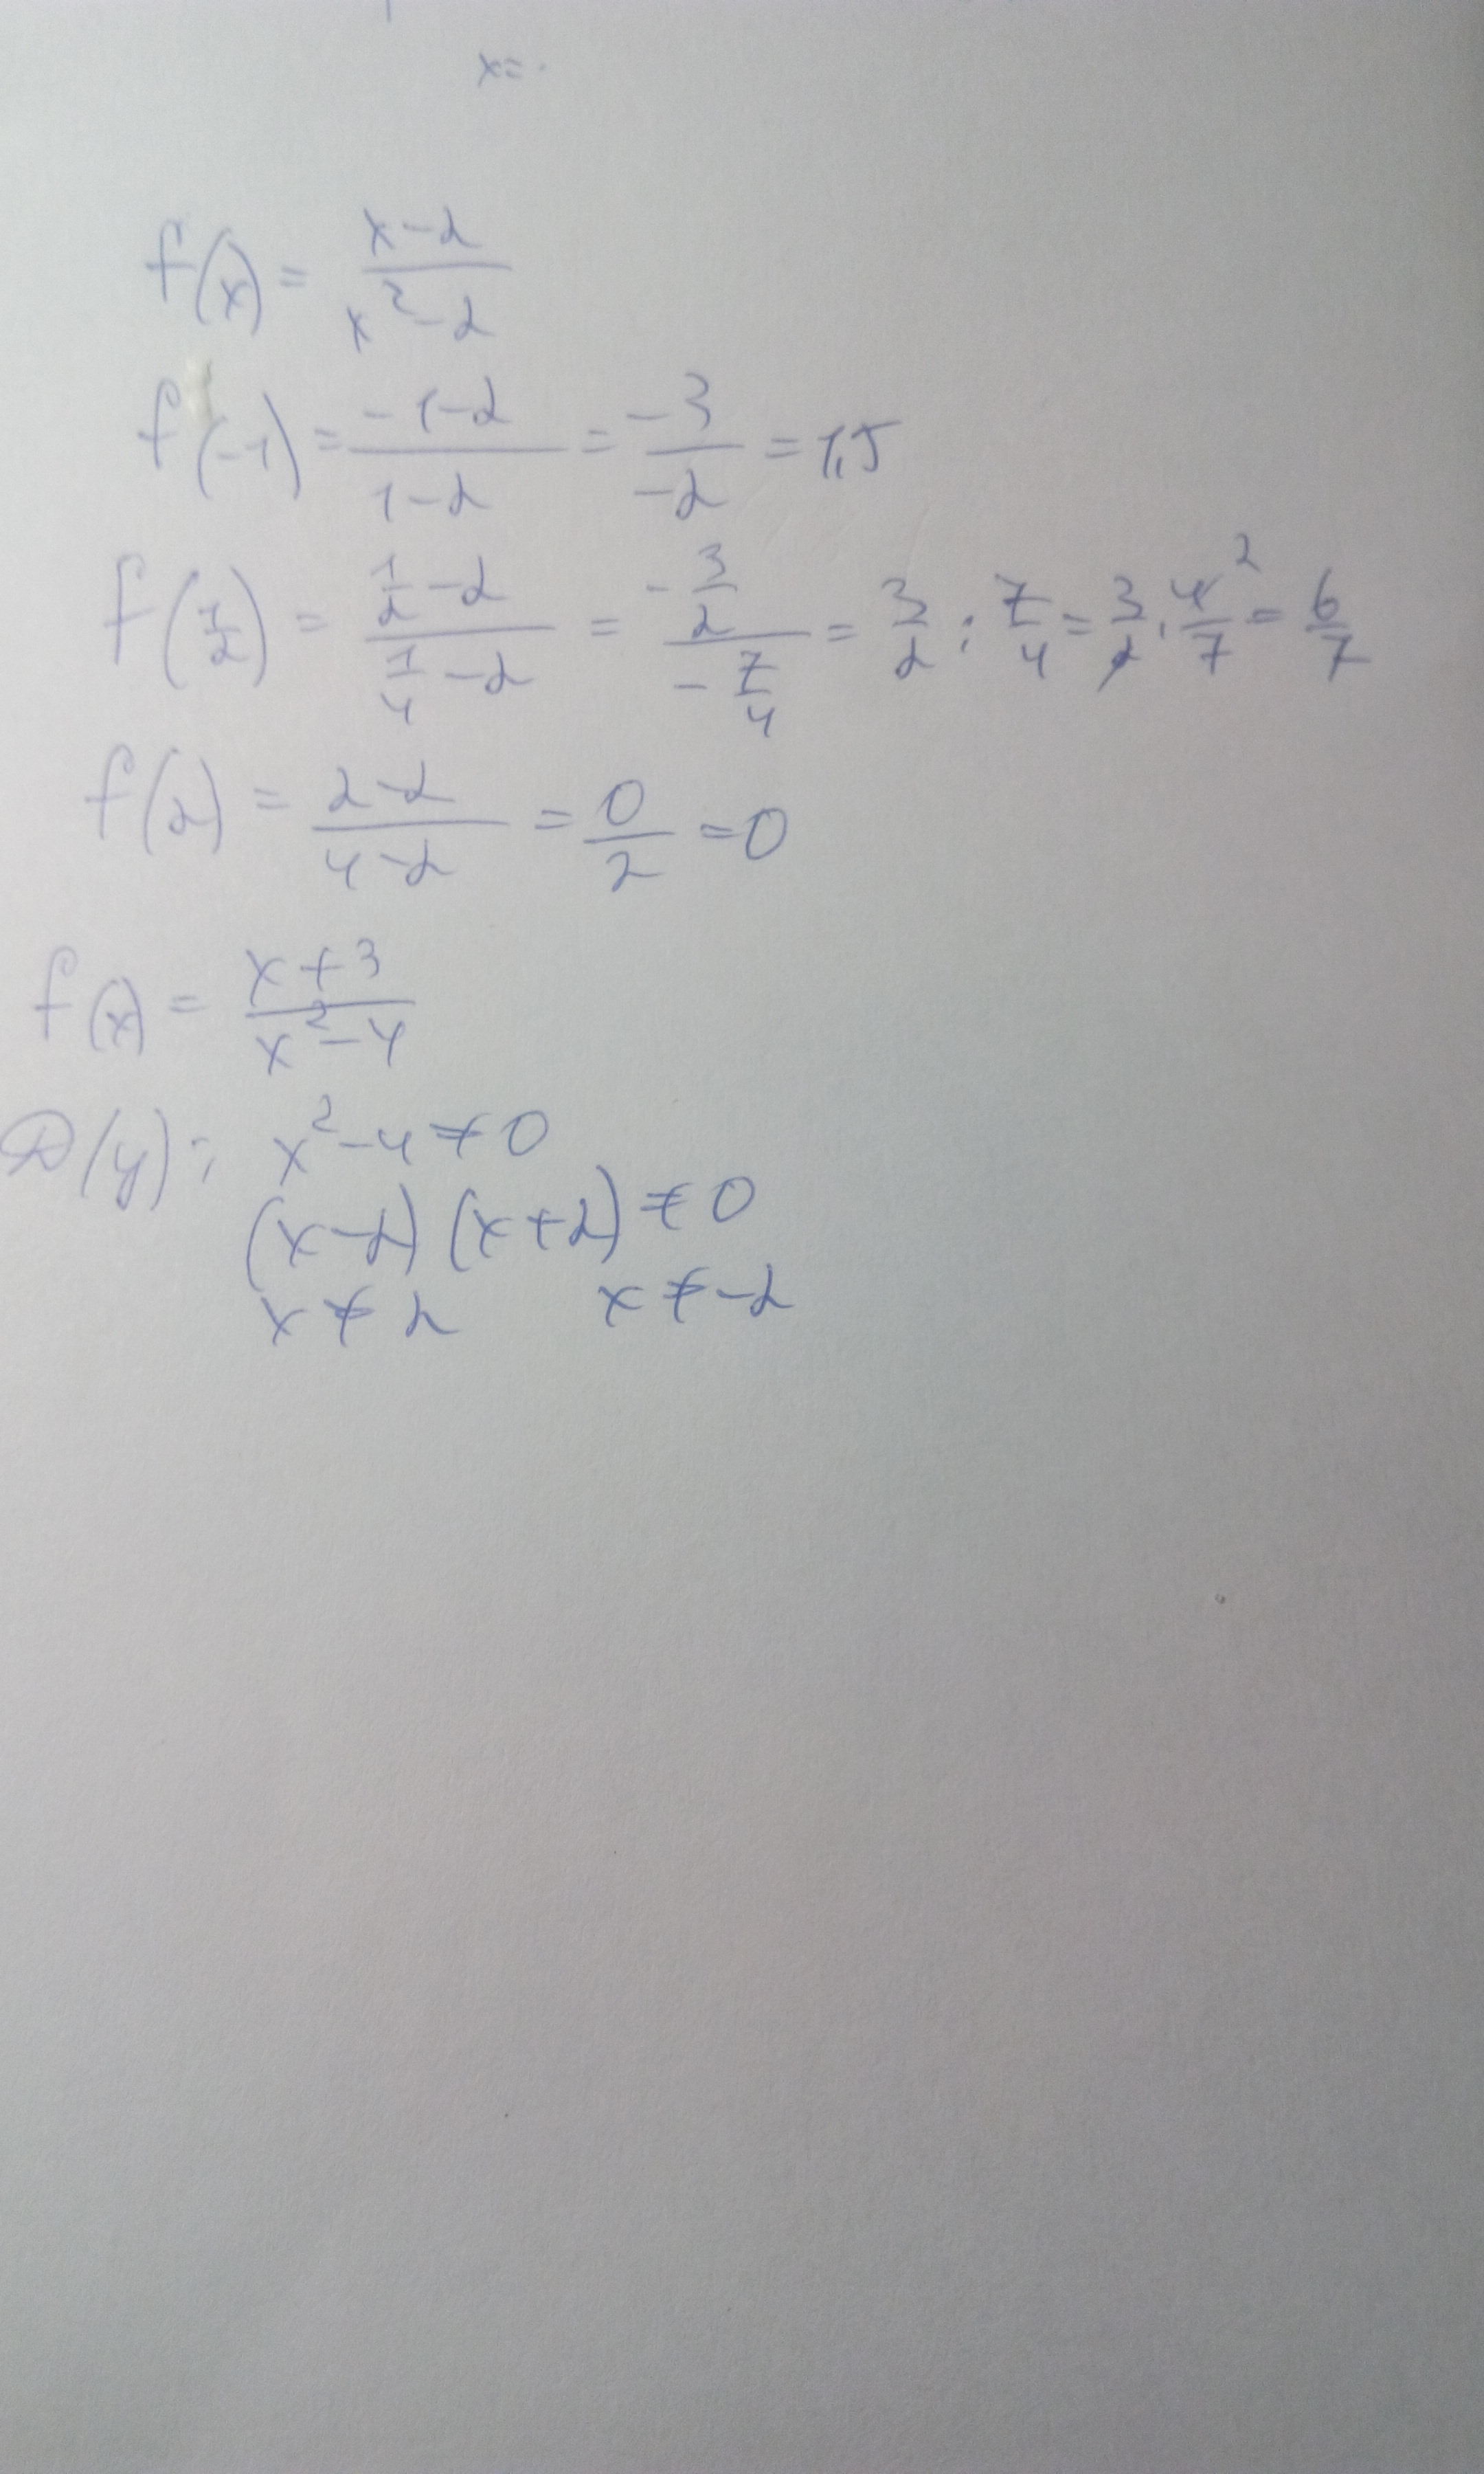 x=.
f(x) = (x-2)/(x²-2)
f(-1) = (-1-2)/(1-2) = (-3)/(-2) = 1,5
f(1/2) = (1/2-2)/(1/4-2) = (-3/2)/(-7/4) = 3/2 : 7/4 = 3/2 · 4²/7 = 6/7
f(2) = (2-2)/(4-2) = 0/2 = 0
f(x) = (x+3)/(x²-4)
D(y): x²-4≠0
(x-2)(x+2)≠0
x≠2 x≠-2